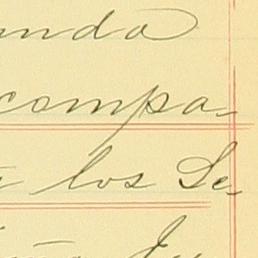 ando
compa-
los Se-